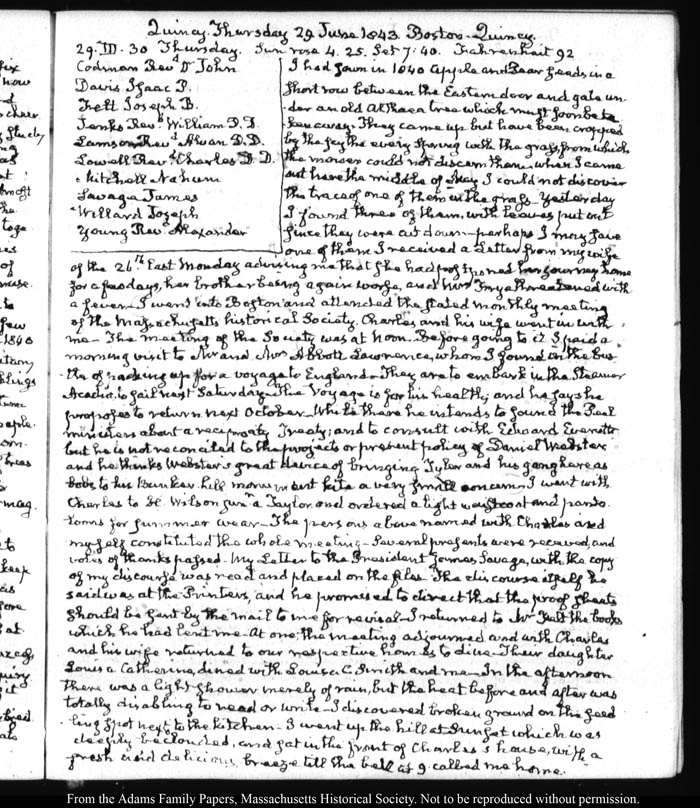 Quincy. Thursday 29 June 1843. Boston-Quincy.
29. III. 30 Thursday. Sun rose 4. 25. Set 7. 40. Fahrenheit 92
Codman Rev.d Dr John
Davis Isaac P.
Felt Joseph B.
Jenks Rev.d William D.D.
Lamson Rev.d Alvan D.D.
Lowell Rev.d Charles D.D.
Mitchell Nahum
Savage James
Willard Joseph
Young Rev. Alexander
I had sown in 1840 Apple and Pear seeds in a
short row between the Eastern door and gate un-
der an old Althaea tree which must soon be
hewn away. They came up but have been cropped
by the scythe every Spring with the grass, from which
the mower could not discern them. when I came
out here the middle of May I could not discover
the trace of one of them in the grass. Yesterday
I found three of them, with leaves put out
since they were cut down—perhaps I may save
one of them I received a Letter from my wife
of the 26th East Monday advising me that she had postponed her journey home
for a few days, her brother being again worse, and Mrs Frye threatened with
a fever. I went into Boston and attended the stated monthly meeting
of the Massachusetts historical Society. Charles and his wife went in with
me—The meeting of the Society was at Noon. Before going to it I paid a
morning visit to Mr and Mrs Abbott Lawrence, whom I found in the bus-
tle of packing up for a voyage to England—They are to embark in the Steamer
Acadia to sail next Saturday. The Voyage is for his health, and he says he
proposes to return next October—While there he intends to sound the Peel
ministers about a reciprocity Treaty; and to consult with Edward Everett
but he is not reconciled to the projects or present policy of Daniel Webster
and he thinks Webster's great device of bringing Tyler and his gang here as
bobs to his Bunker hill monument kite a very small concern. I went with
Charles to H. Wilson jun.r a Taylor, and ordered a light waistcoat and panta-
loons for summer wear—The persons above named with Charles and
myself constituted the whole meeting—Several presents were received, and
votes of thanks passed. My Letter to the President James Savage, with the copy
of my discourse was read and placed on the files. The discourse itself he
said was at the Printers, and he promised to direct that the proof sheets
should be sent by the mail to me for revisal—I returned to Mr Felt the books
which he had lent me—At one, the meeting adjourned and with Charles
and his wife returned to our respective homes to dine. Their daughter
Louisa Catherine, dined with Louisa C. Smith and me—In the afternoon
there was a light shower merely of rain, but the heat before and after was
totally disabling to read or write—I discovered broken ground on the seed
ling spot next to the kitchen—I went up the hill at Sunset which was
deeply beclouded, and sat in the front of Charles's house, with a
fresh and delicious breeze till the bell at 9 called me home.
From the Adams Family Papers, Massachusetts Historical Society. Not to be reproduced without permission.